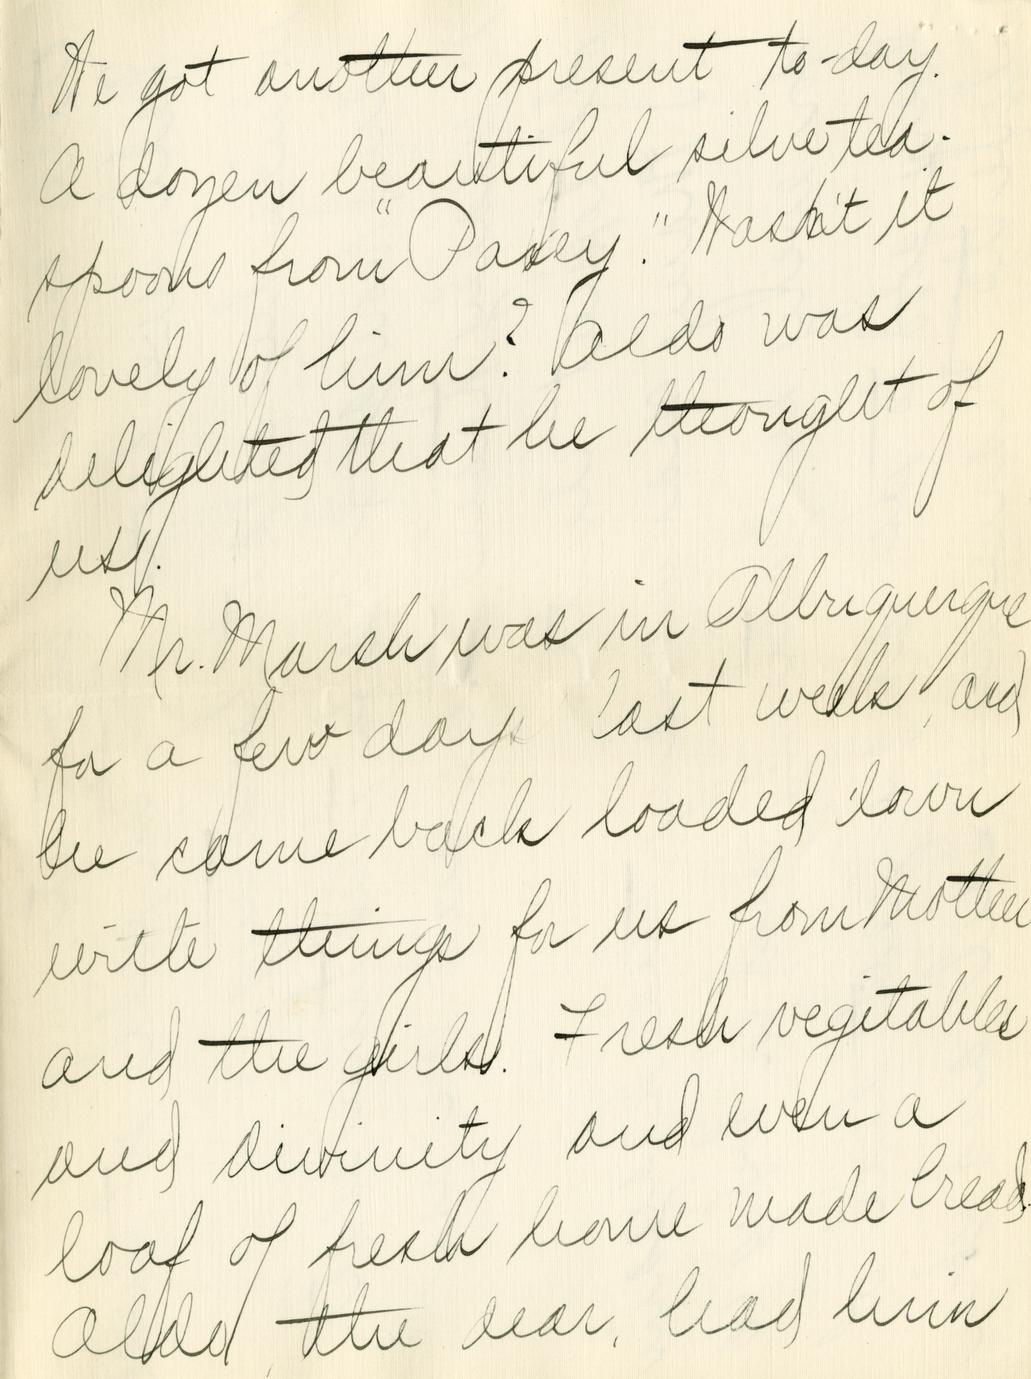 We got another present to-day.
A dozen beautiful silve tea-
spoons from "Pasey." Wasn't it
lovely of him? Aldo was
delighted that he thought of
us.
Mr. Marsh was in Albuquerque
for a few days last week, and
he came back loaded down
with things for us from Mother
and the girls. Fresh vegitables
and divinity and even a
loaf of fresh home made bread.
Aldo, the dear, had him